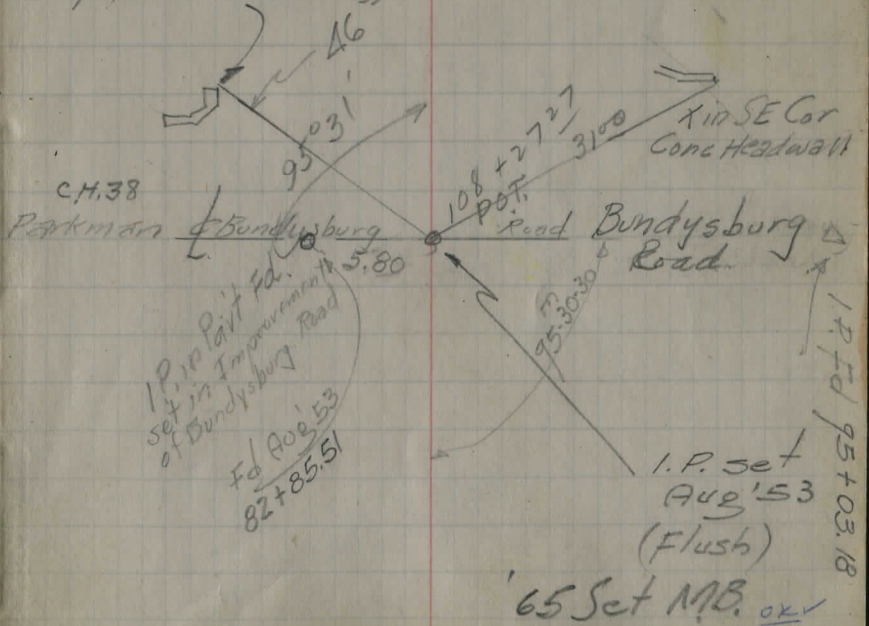 46
93°31'
108+27 27
P.O.T.
31 00
X in SE Cor
Conc Headwall
C.H. 38
Parkman ₵ Bundysburg Road
5.80
Bundysburg
Road
I.P. in Pav't Fd.
set in Improvement
of Bundysburg Road
Fd Aug '53
82+85.51
95-30-30
I.P. set
Aug '53
(Flush)
'65 Set M.B. OK✓
I.P. Fd 95+03.18